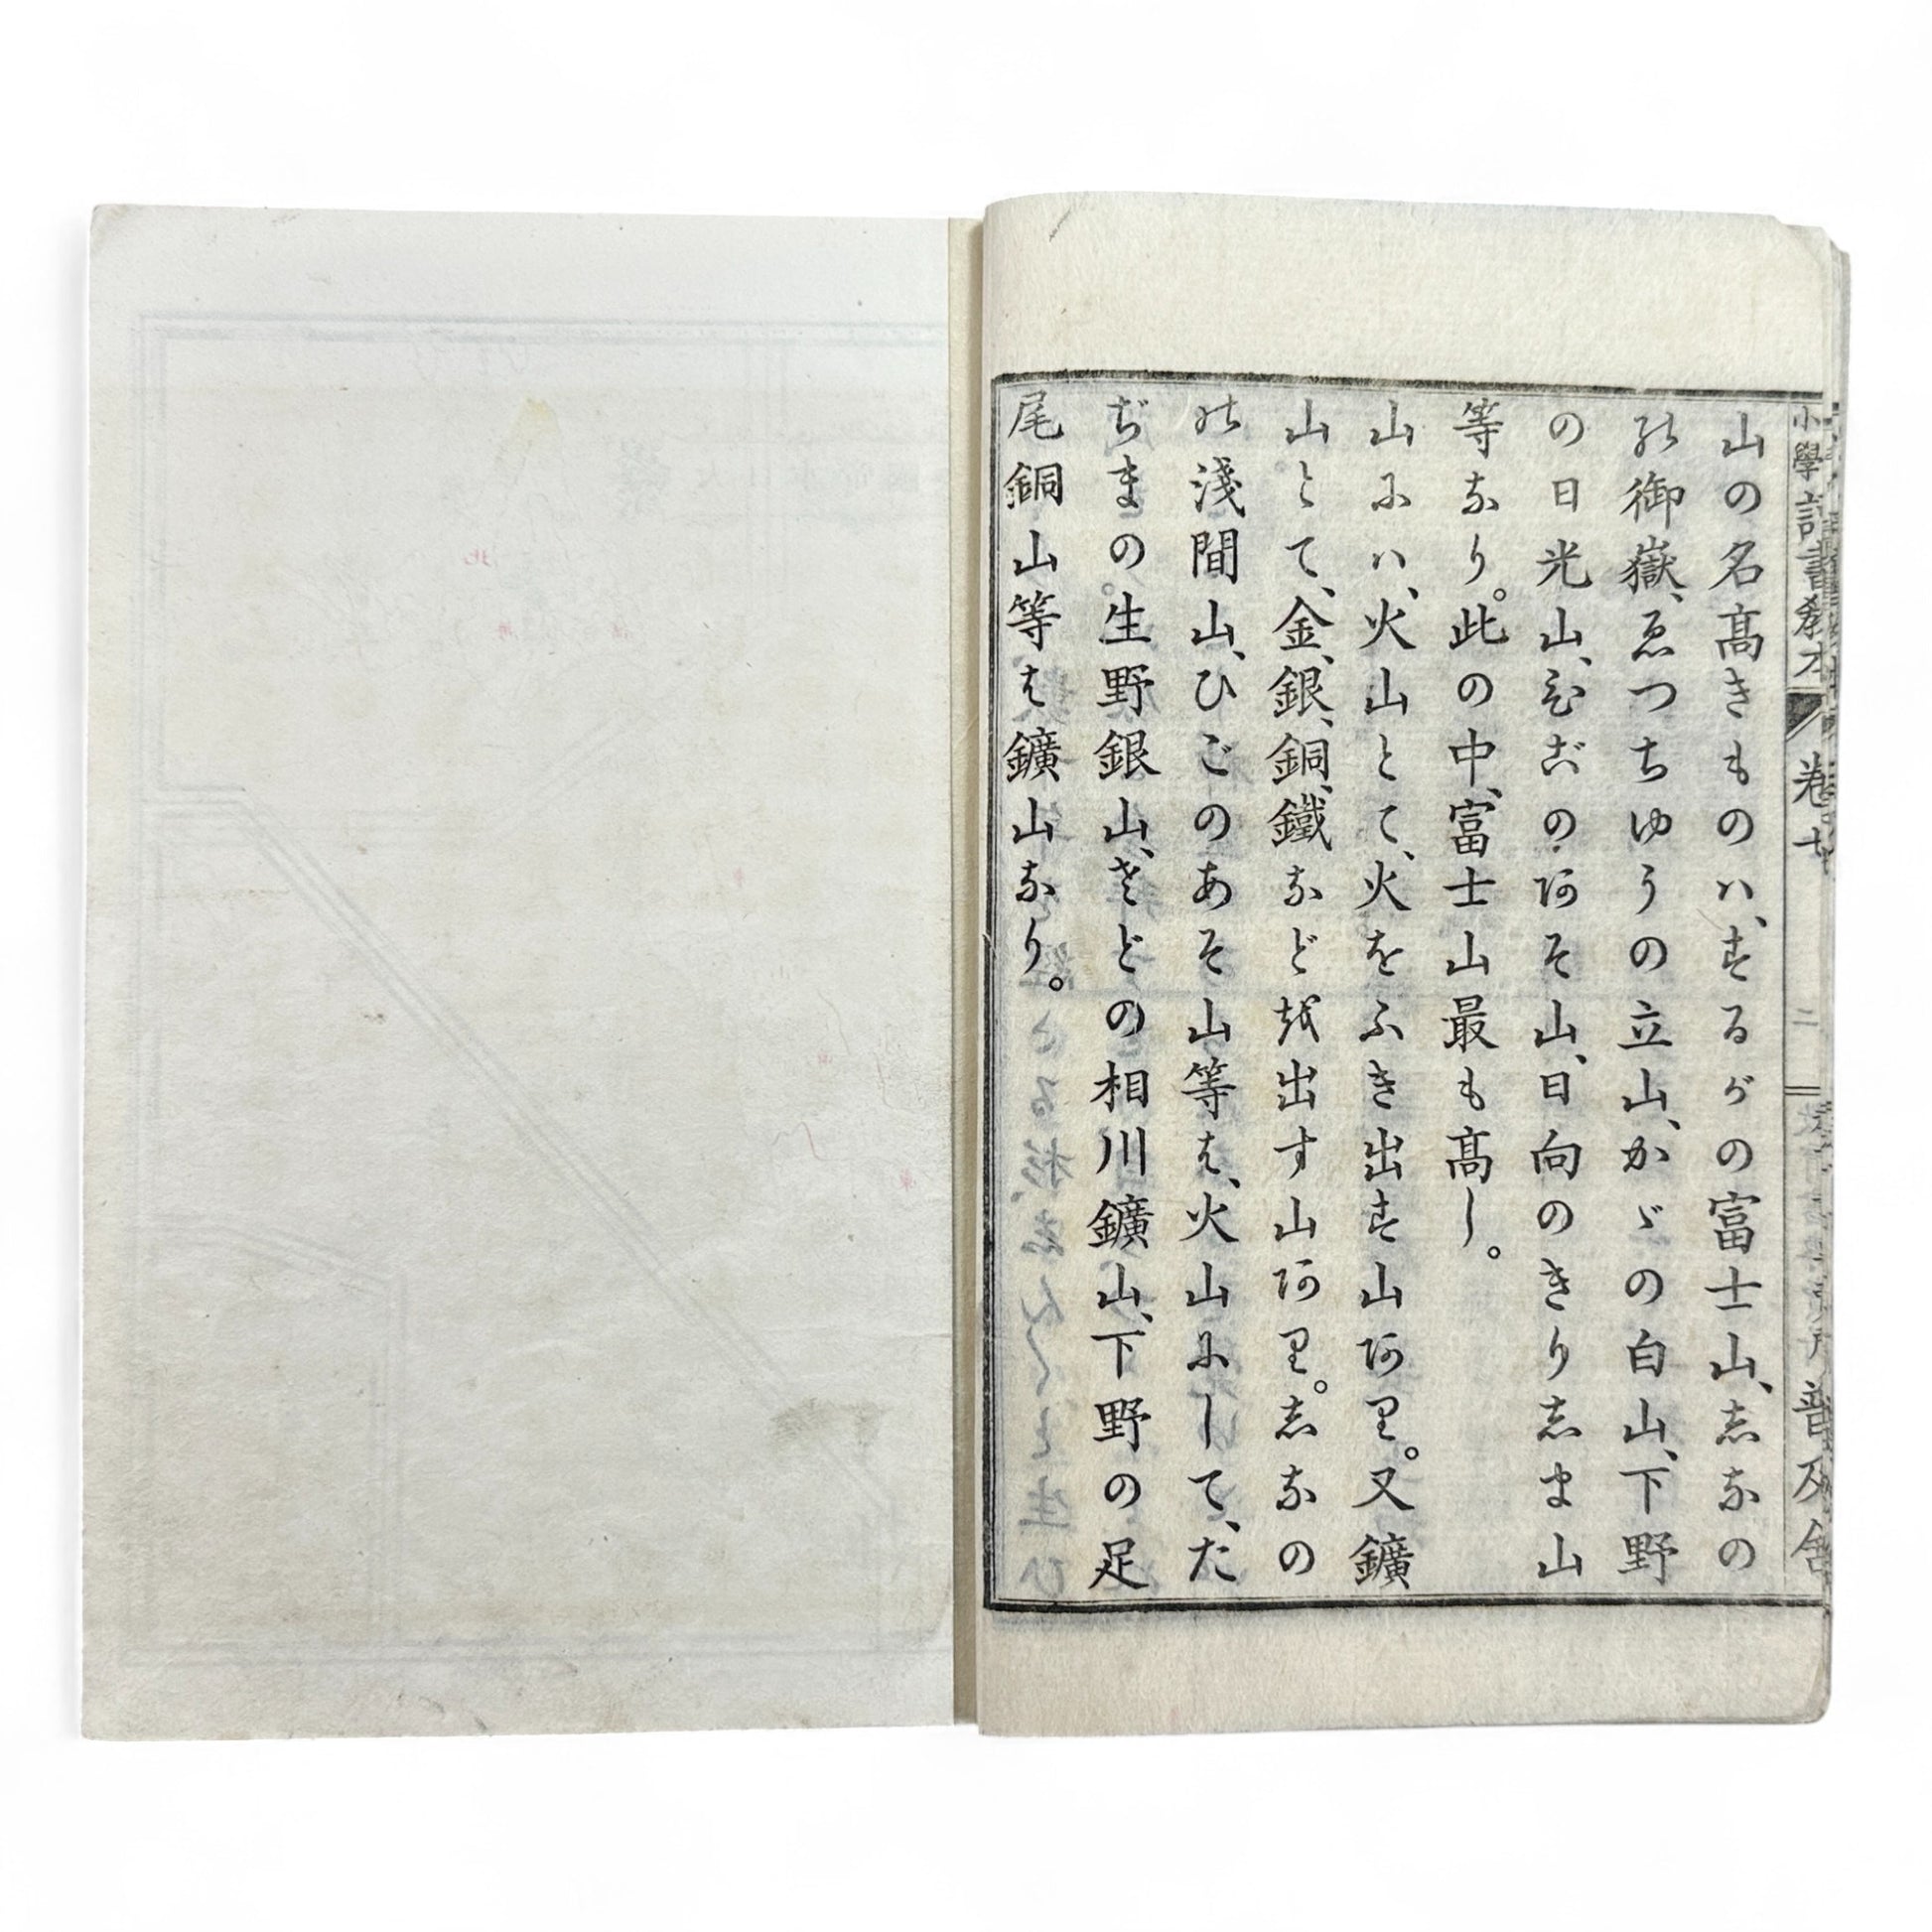 小學讀書教本 卷七 二 普及舎
山の名高きものハ、するがの富士山、志なの
の御嶽、ゑつちゆうの立山、かゞの白山、下野
の日光山、ひごの阿そ山、日向のきり志ま山
等なり。此の中、富士山最も高し。
山にハ、火山とて、火をふき出す山阿り。又鑛
山とて、金、銀、銅、鐵など越出す山阿り。志なの
の淺間山、ひごのあそ山等は、火山にして、た
ぢまの。生野銀山、さどの相川鑛山、下野の足
尾銅山等は鑛山なり。